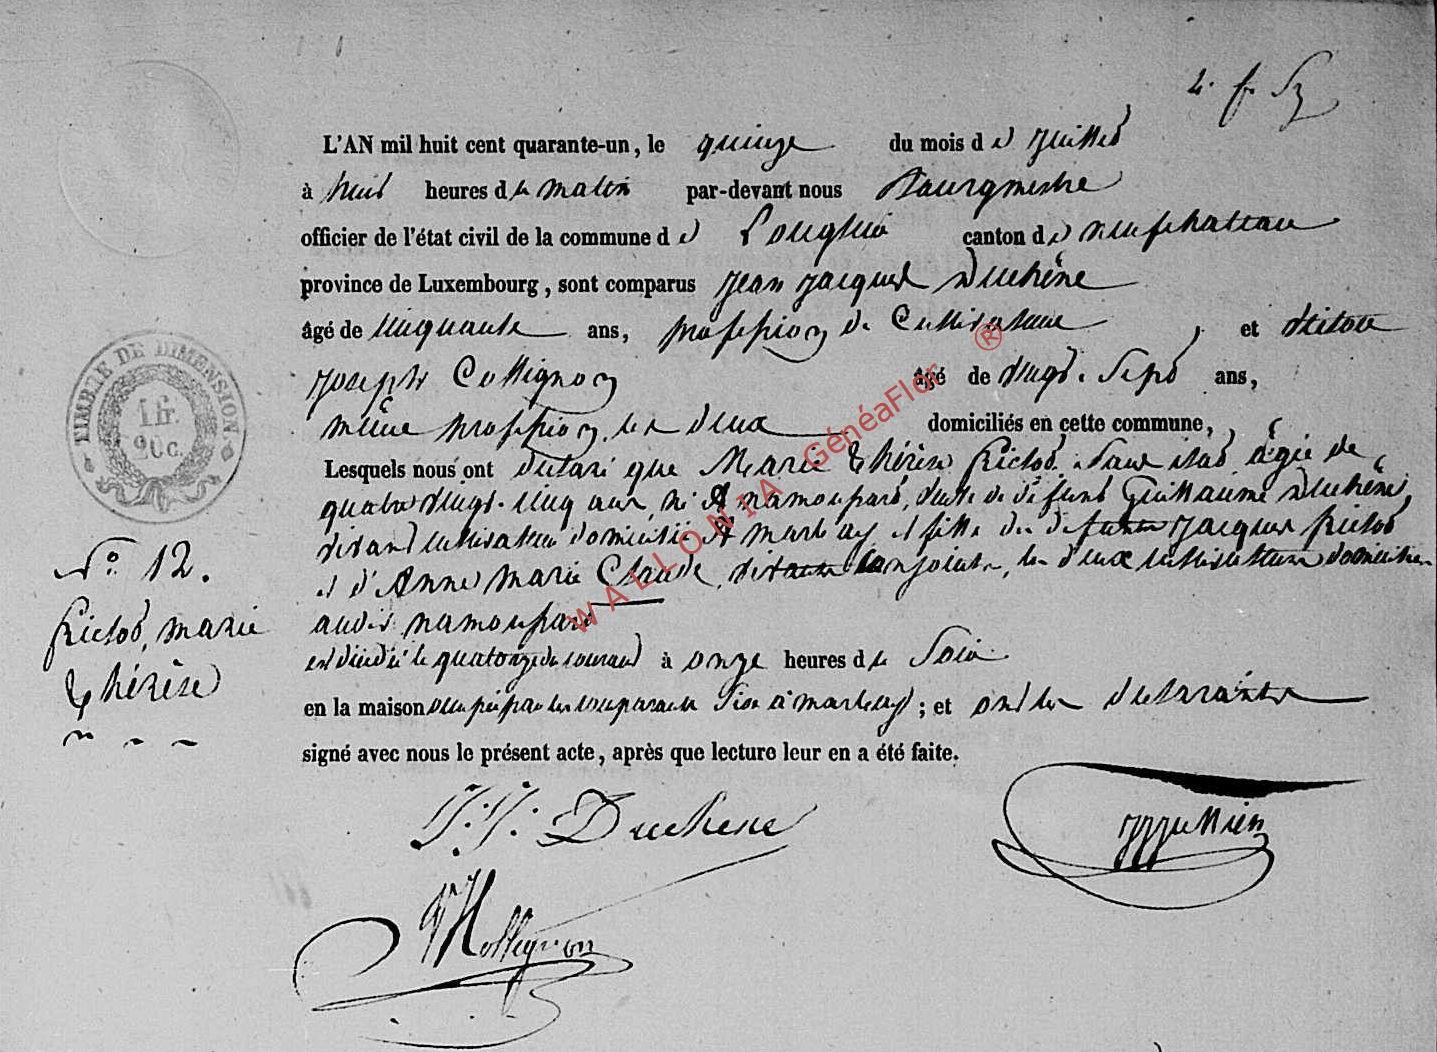 2. f.
L'AN mil huit cent quarante-un, le quinze du mois de Juillet
à huit heures du matin par-devant nous Bourgmestre
officier de l'état civil de la commune de Longlier canton de neufchateau
province de Luxembourg, sont comparus Jean Jacques Duchêne
âgé de cinquante ans, profession de Cultivateur, et
Joseph Collignon âgé de vingt-sept ans,
même profession, les deux domiciliés en cette commune,
Lesquels nous ont déclaré que Marie Thérèse Frictod, sans état, âgée de
quatre vingt-cinq ans, né à namoussart, veuve de défunt Guillaume Duchêne,
vivant cultivateur domicilié à marbay et fille de défunts Jacques Frictod
et d'Anne Marie Claude, vivants conjoints, les deux cultivateurs domiciliés
audit namoussart
est décédée le quatorze du courant à onze heures du Soir
en la maison occupée par les comparants Sise à marbay; et ont les déclarants
signé avec nous le présent acte, après que lecture leur en a été faite.
TIMBRE DE DIMENSION
1 fr.
90 c.
No. 12.
Frictod, marie
thérèse
J. J. Duchene
Collignon
WALLONIA GénéaFlor ®